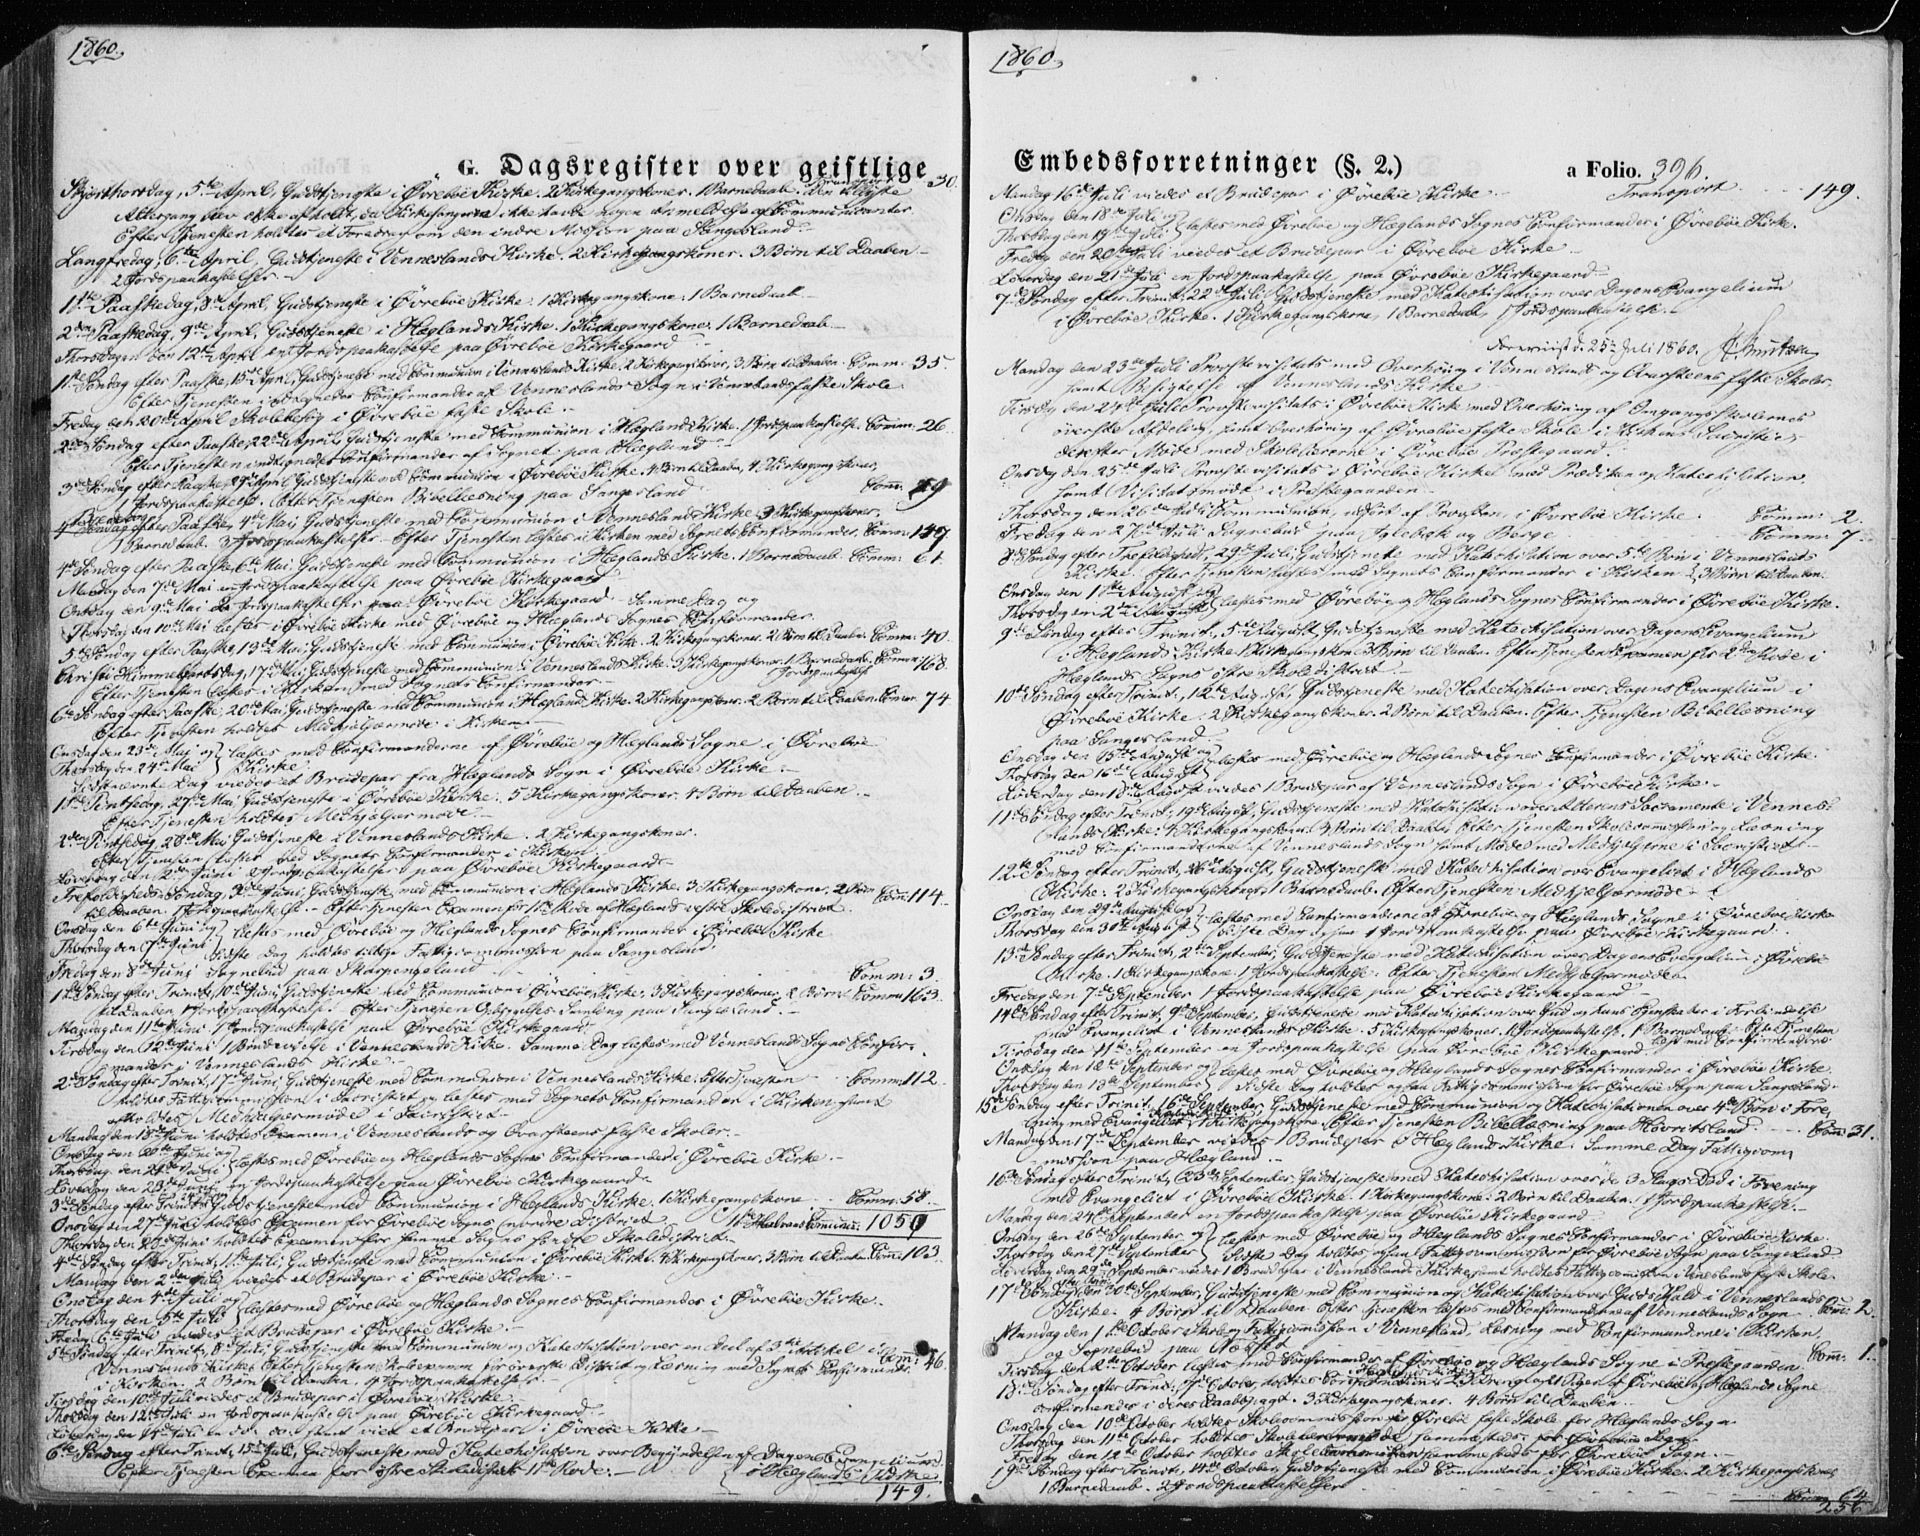 1860.
G. Dagsregister over geistlige
Transport 30.
Skjærthorsdag, 5te April, Gudstjeneste i Øvrebøe Kirke. 2 Kirkegangskoner. 1 Barnedaab. Den
Altergang blev ikke afholdt, da Kirkesangeren ikke havde nogen Anmeldelse af Communicanter
Efter Tjenesten holdtes et Foredrag om den indre Mission paa Sangesland.
Langfredag, 6te April, Gudstjeneste i Venneslands Kirke. 2 Kirkegangskoner. 3 Børn til Daaben.
2 Jordspaakastelser.
1ste Paaskedag, 8de April, Gudstjeneste i Øvrebøe Kirke. 1 Kirkegangskone. 1 Barnedaab.
2den Paaskedag, 9de April, Gudstjeneste i Hæglands Kirke. 1 Kirkegangskone. 1 Barnedaab.
Thorsdagen den 12te April en Jordspaakastelse paa Øvrebøe Kirkegaard.
1ste Søndag efter Paaske, 15de April, Gudstjeneste med Communion i Venneslands Kirke, 2 Kirkegangskoner, 3 Børn til Daaben. Comm: 35.
Efter Tjenesten indtegnedes Confirmander af Venneslands Sogn i Venneslands faste Skole.
Fredag den 20de April Skolebesøg i Øvrebøe faste Skole.
2den Søndag efter Paaske, 22de April, Gudstjeneste med Communion i Hæglands Kirke. 1 Jordspaakastelse. Comm: 26.
Efter Tjenesten indtegnedes Confirmander af Sognet paa Hægland.
3die Søndag efter Paaske, 29de April, Gudstjeneste med Communion i Øvrebøe Kirke. 4 Børn til Daaben, 4 Kirkegangskoner,
1 Jordspaakastelse. Efter Tjenesten Bibellæsning paa Sangesland. Comm:
efter Paaske, 4de Mai, Gudstjeneste med Communion i Venneslands Kirke, 3 Kirkegangskoner,
1 Barnedaab. 3 Jordspaakastelser. Efter Tjenesten læstes i Kirken med Sognets Confirmander. Comm:
4de Søndag efter Paaske, 6te Mai, Gudstjeneste med Communion i Hæglands Kirke. 1 Barnedaab. Comm: 61.
Mandag den 7de Mai en Jordspaakastelse paa Øvrebøe Kirkegaard
Onsdag den 9de Mai 2 Jordspaakastelser paa Øvrebøe Kirkegaard. Samme Dag og
Thorsdag den 10de Mai læstes i Øvrebøe Kirke med Øvrebøe og Hæglands Sognes Confirmander.
5te Søndag efter Paaske, 13de Mai, Gudstjeneste med Communion i Øvrebøe Kirke. 2 Kirkegangskoner. 2 Børn til Daaben. Comm: 40.
Christi Himmelfartsdag, 17de Mai, Gudstjeneste med Communion i Venneslands Kirke. 3 Kirkegangskoner. 1 Barnedaab. 1 Jordspaakastelse Comm: 168.
Efter Tjenesten læstes i Kirken med Sognets Confirmander.
6te Søndag efter Paaske, 20de Mai, Gudstjeneste med Communion i Hæglands Kirke. 2 Kirkegangskoner. 2 Børn til Daaben. Comm: 74.
Efter Tjenesten holdtes Medhjælpermøde i Kirken.
Onsdag den 23de Mai og
Thorsdag den 24de Mai } læstes med Confirmanderne af Øvrebøe og Hæglands Sogne i Øvrebøe Kirke.
Sidstnævnte Dag viedes et Brudepar fra Hæglands Sogn i Øvrebøe Kirke.
1ste Pintsedag, 27de Mai, Gudstjeneste i Øvrebøe Kirke. 5 Kirkegangskoner. 4 Børn til Daaben.
Efter Tjenesten holdtes Medhjælpermøde.
2den Pintsedag, 28de Mai Gudstjeneste i Venneslands Kirke. 2 Kirkegangskoner.
Efter Tjenesten læstes med Sognets Confirmander i Kirken.
Løverdag den 2den Juni 2 Jordspaakastelser paa Øvrebøe Kirkegaard.
Trefoldigheds Søndag, 3die Juni, Gudstjeneste med Communion i Hæglands Kirke. 3 Kirkegangskoner, 2 Børn
til Daaben. 1 Jordspaakastelse. Efter Tjenesten Examen for 11te Rode af Hægland vestre Skoledistrict. Comm: 114.
Onsdag den 6te Juni og
Thorsdag den 7de Juni } læstes med Øvrebøe og Hæglands Sognes Confirmander i Øvrebøe Kirke
Sidste Dag holdtes tillige Fattigcommission paa Sangesland.
Fredag den 8de Juni Sognebud paa Skarpengeland. Comm: 3.
1ste Søndag efter Trinit., 10de Juni, Gudstjeneste med Communion i Øvrebøe Kirke, 3 Kirkegangskoner, 2 Børn Comm: 163.
til Daaben, 1 Jordspaakastelse. Efter Tjenesten Samling paa Sangesland.
Mandag den 11te Juni 1 Jordspaakastelse paa Øvrebøe Kirkegaard.
Tirsdag den 12te Juni 1 Brudevielse i Venneslands Kirke. Samme Dag læstes med Venneslands Sogns Confir-
mander i Venneslands Kirke.
2den Søndag efter Trinit., 17de Juni, Gudstjeneste med Communion i Venneslands Kirke. Efter Tjenesten Comm: 112.
holdtes Fattigcommission i Sacristiet og læstes med Sognets Confirmander i Kirken, samt
afholdtes Medhjælpermøde i Sacristiet.
Mandag den 18de Juni holdtes Examen i Venneslands og Qvarsteens faste Skoler.
Onsdag den 20de Juni og
Thorsdag den 21de Juni } læstes med Øvrebøe og Hæglands Sognes Confirmander i Øvrebøe Kirke.
Løverdag den 23de Juni en Jordspaakastelse paa Øvrebøe Kirkegaard.
3die Søndag efter Trinit., 24 Juni, Gudstjeneste med Communion i Hæglands Kirke. 1 Kirkegangskone. Comm: 58.
Onsdag den 27de Juni holdtes Examen for Øvrebøe Sogns nordre District 1ste Halvaars Communic: 1050
Thorsdag den 28de Juni holdtes Examen for samme Sogns søndre Skoledistrict.
4de Søndag efter Trinit., 1ste Juli, Gudstjeneste med Communion i Øvrebøe Kirke. 4 Kirkegangskoner, 3 Børn til Daaben. Comm: 103.
Mandag den 2den Juli viedes et Brudepar i Øvrebøe Kirke.
Onsdag den 4de Juli og
Thorsdag den 5te Juli } læstes med Øvrebøe og Hæglands Sognes Confirmander i Øvrebøe Kirke.
Fredag 6te Juli viedes et Brudepar i Øvrebøe Kirke.
5te Søndag efter Trinit., 8de Juli, Gudstjeneste med Communion og Katechisation over en Deel af 3die Artikel i Comm: 46.
Venneslands Kirke. Efter Tjenesten Skoleexamen for øverste District og Læsning med Sognets Confirmander
i Kirken. 2 Børn til Daaben. 4 Jordspaakastelser.
Tirsdag den 10de Juli viedes et Brudepar i Øvrebøe Kirke.
Thorsdag den 12te Juli en Jordspaakastelse paa Øvrebøe Kirkegaard.
Løverdag den 14de Juli en do. do. samt viet et Brudepar i Øvrebøe Kirke.
6te Søndag efter Trinit., 15de Juli, Gudstjeneste med Katechisation over Begyndelsen af Dagens Evangelium
Efter Tjenesten Examen for østre Skoledistrict 11te Rode. i Hæglands Kirke
149.
1860.
Embedsforretninger (§. 2.)
a Folio. 396.
Mandag 16de Juli viedes et Brudepar i Øvrebøe Kirke Transport 149.
Onsdag den 18de Juli og
Thorsdag den 19de Juli } læstes med Øvrebøe og Hæglands Sognes Confirmander i Øvrebøe Kirke.
Fredag den 20de Juli viedes et Brudepar i Øvrebøe Kirke.
Løverdag den 21de Juli en Jordspaakastelse paa Øvrebøe Kirkegaard.
7de Søndag efter Trinit., 22de Juli, Gudstjeneste med Katechisation over Dagens Evangelium
i Øvrebøe Kirke. 1 Kirkegangskone, 1 Barnedaab, 1 Jordspaakastelse.
25de Juli 1860.
Mandag den 23de Juli Provstevisitats med Overhøring i Venneslands og Qvarsteens faste Skoler,
samt Besigtelse af Venneslands Kirke.
Tirsdag den 24de Juli Provstevisitats i Øvrebøe Kirke med Overhøring af Omgangsskolernes
øverste Afdeling, samt Overhøring af Øvrebøe faste Skole i Kirkens Sacristie;
derefter Møde med Skolelærerne i Øvrebøe Præstegaard.
Onsdag den 25de Juli Provstevisitats i Øvrebøe Kirke med Prædiken og Katechisation,
samt Visitatsmøde i Præstegaarden.
Thorsdag den 26de Juli Communion, udført af Provsten, i Øvrebøe Kirke. Comm: 2.
Fredag den 27de Juli Sognebud paa Iglebæk og Berge. Comm: 7.
8de Søndag efter Trefoldighed, 29de Juli, Gudstjeneste med Katechisation over 5te Bøn i Venneslands
Kirke. Efter Tjenesten læstes med Sognets Confirmander i Kirken. 3 Børn til Daaben.
Onsdag den 1ste August og
Thorsdag den 2den August } læstes med Øvrebøe og Hæglands Sognes Confirmander i Øvrebøe Kirke.
9de Søndag efter Trinit., 5te August, Gudstjeneste med Katechisation over Dagens Evangelium
i Hæglands Kirke. 1 Kirkegangskone. 3 Børn til Daaben. Efter Tjenesten Examen for 2den Rode i
Hæglands Sogns østre Skoledistrict.
10de Søndag efter Trinit., 12te August, Gudstjeneste med Katechisation over Dagens Evangelium i
Øvrebøe Kirke. 2 Kirkegangskoner. 2 Børn til Daaben. Efter Tjenesten Bibellæsning
paa Sangesland.
Onsdag den 15de August og
Thorsdag den 16de August } læstes med Øvrebøe og Hæglands Sognes Confirmander i Øvrebøe Kirke.
Løverdag den 18de August viedes 1 Brudepar af Venneslands Sogn i Øvrebøe Kirke.
11te Søndag efter Trinit., 19de August, Gudstjeneste med Katechisation over Alterens Sacramente i Vennes-
lands Kirke. 4 Kirkegangskoner. 4 Børn til Daaben. Efter Tjenesten Skolecommission og Læsning
med Confirmanderne af Venneslands Sogn samt Møde med Medhjælperne i Sacristiet.
12te Søndag efter Trinit., 26de August, Gudstjeneste med Katechisation over Evangeliet i Hæglands
Kirke. 2 Kirkegangskoner. 1 Barnedaab. Efter Tjenesten Medhjælpermøde.
Onsdag den 29de August og
Thorsdag den 30te August } læstes med Confirmanderne af Øvrebøe og Hæglands Sogne i Øvrebøe Kirke
sidste Dag ogsaa 1 Jordspaakastelse paa Øvrebøe Kirkegaard.
13de Søndag efter Trinit., 2den September, Gudstjeneste med Katechisation over Dagens Evangelium i Øvrebøe
Kirke. 1 Kirkegangskone. 1 Jordspaakastelse. Efter Tjenesten Medhjælpermøde.
Fredag den 7de September 1 Jordspaakastelse paa Øvrebøe Kirkegaard.
14de Søndag efter Trinit., 9de September, Gudstjeneste med Katechisation over Gud og hans Egenskaber i Forbindelse
med Evangeliet i Venneslands Kirke. 5 Kirkegangskoner. 1 Jordspaakastelse. 1 Barnedaab. Efter Tjenesten
læst med Confirmanderne.
Tirsdag den 11te September en Jordspaakastelse paa Øvrebøe Kirkegaard.
Onsdag den 12te September og
Thorsdag den 13de September } læstes med Øvrebøe og Hæglands Sognes Confirmander i Øvrebøe Kirke.
Sidste Dag holdtes ogsaa Fattigcommission for Øvrebøe Sogn paa Sangesland.
15de Søndag efter Trinit., 16de September, Gudstjeneste med Communion og Katechisationen over 4de Bøn i Fore-
ning med Evangeliet i Hæglands Kirke. 1 Kirkegangskone. Efter Tjenesten Bibellæsning paa Hovritsland. Comm: 31.
Mandag den 17de September viedes 1 Brudepar i Hæglands Kirke. Samme Dag Fattigcom-
mission paa Hægland.
16de Søndag efter Trinit., 23de September, Gudstjeneste med Katechisation over de 3 Slags Død i Forening
med Evangeliet i Øvrebøe Kirke. 1 Kirkegangskone. 2 Børn til Daaben. 1 Jordspaakastelse.
Mandag den 24de September en Jordspaakastelse paa Øvrebøe Kirkegaard.
Onsdag den 26de September og
Thorsdag den 27de September } læstes med Øvrebøe og Hæglands Sognes Confirmander i Øvrebøe Kirke.
Sidste Dag holdtes ogsaa Fattigcommission for Øvrebøe Sogn paa Sangesland.
Løverdag den 29de September viedes 1 Brudepar i Venneslands Kirke, samt holdtes Fattigcommission i Venneslands faste Skole.
17de Søndag efter Trinit. den 30te September, Gudstjeneste med Communion og Katechisation over Guds Huld i Venneslands
Kirke. 4 Børn til Daaben. Efter Tjenesten læstes med Confirmanderne af Venneslands Sogn. Comm: 2.
Mandag den 1ste October Skole- og Fattigcommission i Vennesland, Læsning med Confirmanderne i Kirken,
og Sognebud paa Comm: 1.
Tirsdag den 2den October læstes med Confirmander af Øvrebøe og Hæglands Sogne i Præstegaarden.
18de Søndag efter Trinit., 7de October, holdtes Confirmation, Drenge og Piger af Øvrebøe og Hæglands Sogne
confirmerdes i deres Daabspagt. 3 Kirkegangskoner. 4 Børn til Daaben.
Onsdag den 10de October holdtes Skolecommission for Øvrebøe faste Skole for Hæglands Sogn.
Thorsdag den 11te October holdtes Skolelærermøde sammesteds for Øvrebøe Sogn.
Fredag den 12te October holdtes Skolecommission sammesteds for Øvrebøe Sogn.
19de Søndag efter Trinit., 14de October, Gudstjeneste med Communion i Øvrebøe Kirke. 2 Kirkegangskoner
1 Barnedaab. 2 Jordspaakastelser. Comm: 64
256